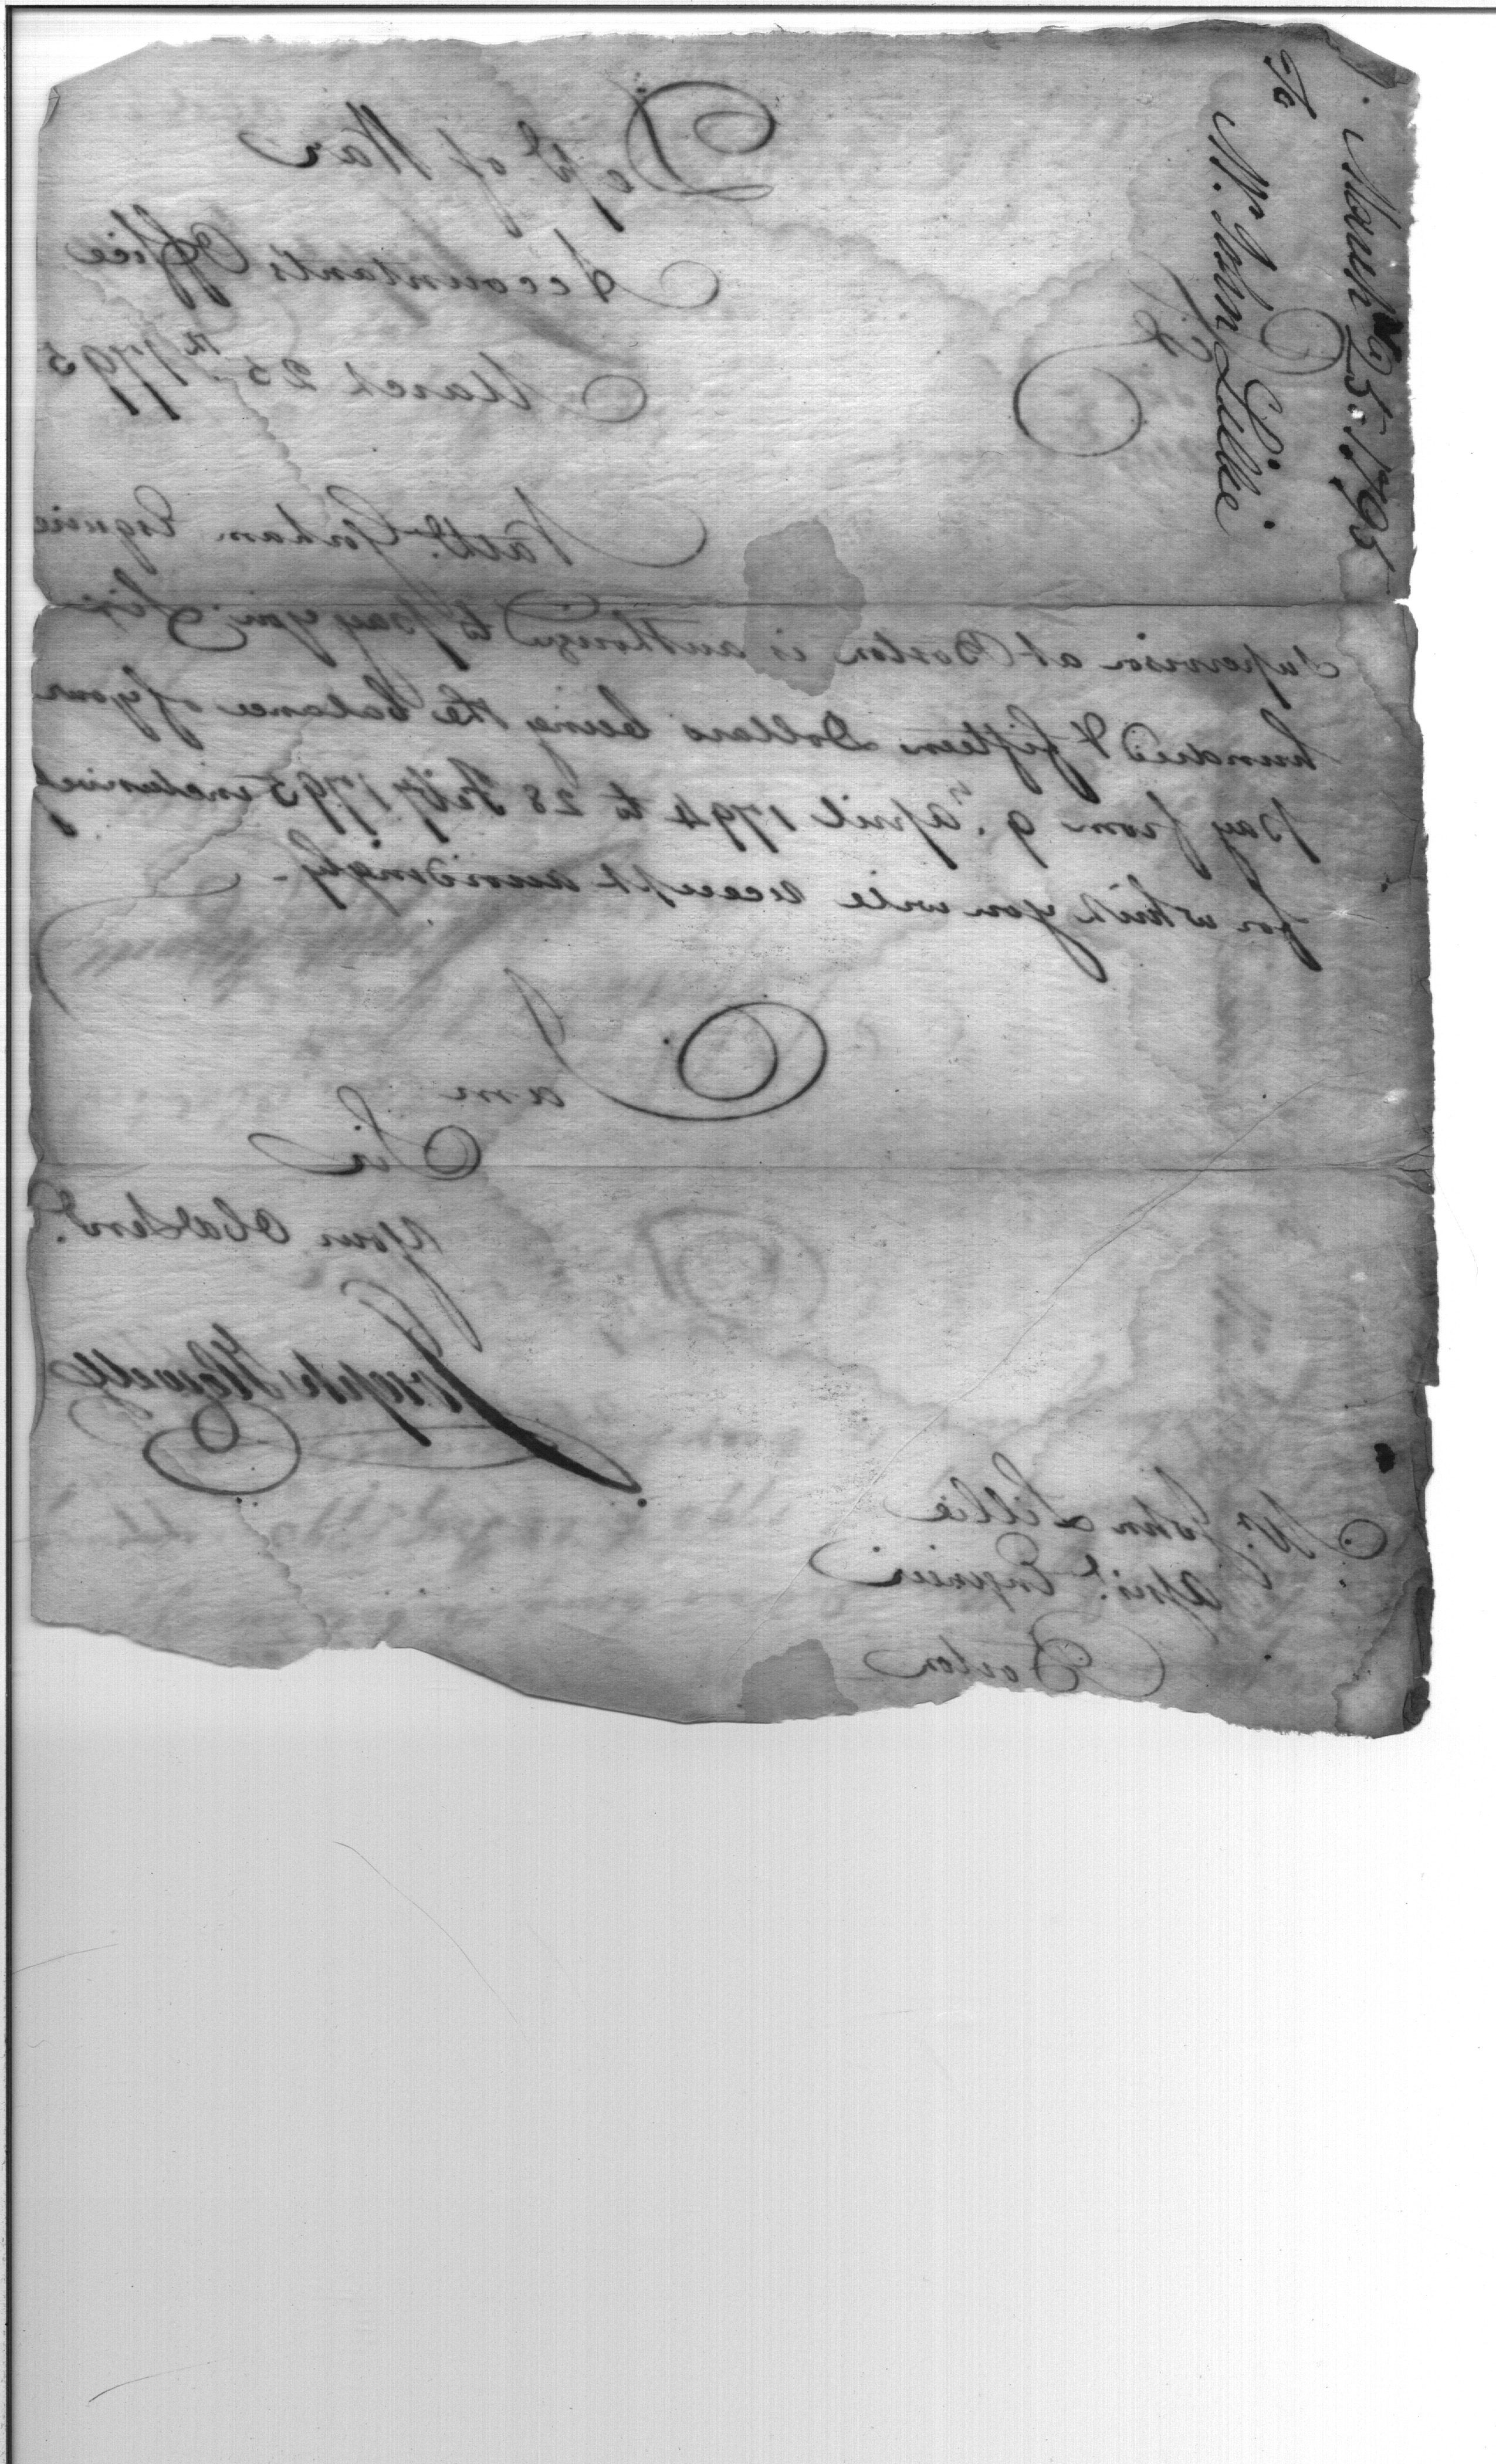 March 25. 1795
To
Mr. John Lillie
Dept. of War
Accountants Office
March 25th 1795
Sir
Nathl. Gorham Esquire
Supervisor at Boston is authorized to pay you Six
hundred & fifteen Dollars being the balance of your
pay from 9th April 1794 to 28 Feby 1795 inclusively
for which you will receipt accordingly.
I am
Sir
Your Obed Servt.
Joseph Howell
Mr. John Lillie
Assist. Engineer
Boston